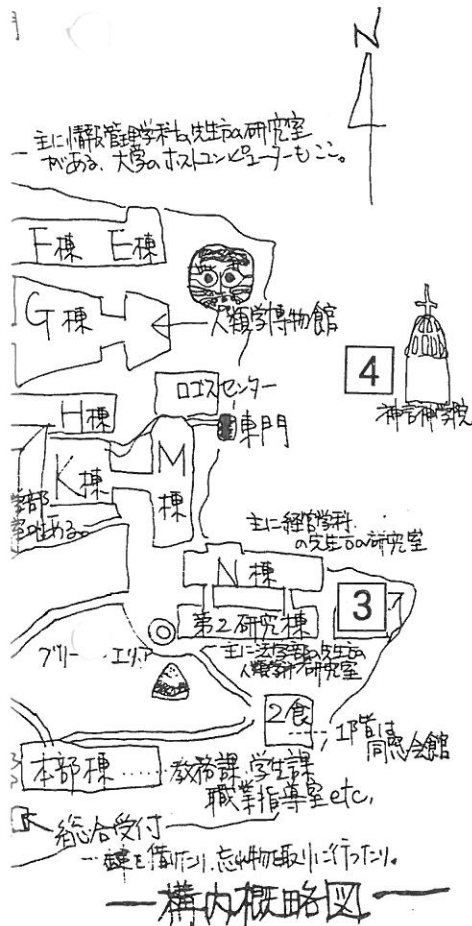 N
主に情報管理学科の先生方の研究室
がある、大学のホストコンピューターもここ。
F棟 E棟
G棟
人類学博物館
4
神言神学院
ロゴスセンター
H棟
東門
K棟
M棟
学部
主に経営学科
の先生方の研究室
N棟
3
第2研究棟
フリー エリア
主に法学部の先生方の
人類学科研究室
2食
1F階は
同窓会館
本部棟……教務課、学生課
職業指導室etc,
総合受付
鍵を借りたり、忘れ物を取りに行ったり。
構内概略図